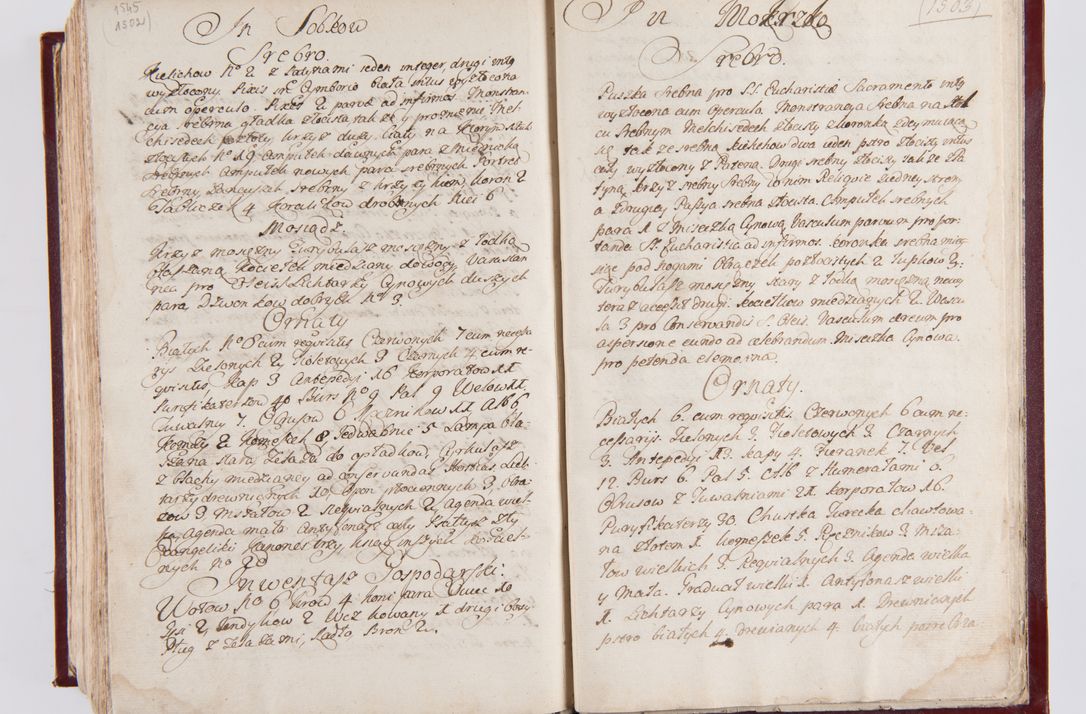 1545
1502
In Sobkow
Srebro.
Kielichow No 2 z Patynami ieden integer, drugi intq
wyzłocony. Pixis sne Cymborio biała intus wyzłocona
cum operculo. Pixes 2 parvae ad infirmos. Monstran-
cya srebrna gładka złocista tak że y promieni, Mel-
chisedech pozłoty, krzyż duży biały na którym
złocistych No 19 Ampułek dawnych para z Miednicką
srebrnych Ampułek nowych para srebrnych Portret
srebrny, Łancuszek srebrny z krzyżykiem, koron 2
Tabliczek 4 koralikow drobnych Nici 6
Mosiądz.
Krzyż mosiężny Turybularz mosiężny z łodką
Kociełek miedziany do wody, Vasculan
nec pro Oleis Lichtarzy Cynowych duszych
para, Dzwonkow dobrych No 3.
Ornaty
Białych No 8 cum requisitis Czerwonych 7 cum necessa
rys Zielonych 2, Fioletowych 3 Czarnych 4 cum re-
quisitis Kap 3 Antepedyi 16 Korporałow 11
Puryfikaterzow 40 Burs No 9 Pal 9 Welow 11.
Tuwalny 7. Obrusow 6 Ręcznikow 11 Alb 6
Komży 2 Komeżek 8 Jedwabnic 5 Lampa bla-
szana stara, Żelaza do opłatkow, Cyrkularz
z blachy miedzianey ad conservandas Hostias, Lich-
tarzy drewnianych 10 Opon płociennych 3, Obra-
zow 3 Mszałow 2 Requialnych 2 Agenda wiel-
ka, Agenda mała Antyfonarz cały Psałterz zły
Ewangeliki Kanones trzy, ksiąg inszych kościel-
nych No 20
Inwentarz Gospodarski.
Wołow No 6 krow 4 koni para Owiec 10
Gęsi 2, Indykow 2 Woz kowany 1 drugi bosy
Pług z Żelazami, Radło Bron 2.
1503
In Mokrzko
Srebro.
Puszka srebna pro SS. Eucharistiae Sacramento intq
wyzłocona cum opercula. Monstrancya srebna na
cu srebnym Melchisedech złocisty z koronką zdeymuiącą
się także srebna Kielichow dwa ieden pstro złocisty intus
cały wyzłocony z Patena. Drugi srebny złocisty także z Pa
tyną. Krzyż srebny srebny w nim Religuie z iedney strony
a z drugiey Passya srebna złocista. Ampułek srebnych
para 1 z Miseczką Cynową. Vasculum parvum pro por-
tanda SS. Eucharistia ad infirmos. Koronka srebna mie-
siąc pod nogami Obrączek pozłocistych 2 łupkow 3.
Turybularz mosiężny stary z łodką mosiężną nowy
tera z accessit drugi. Kociełkow miedzianych 2. Vascu
la 3 pro Conservandis S. Oleis. Vasculum aereum pro
aspersione eundo ad celebrandum. Miseczka Cynowa.
pro petenda elemosina.
Ornaty.
Białych 6. cum requisitis. Czerwonych 6 cum ne-
cessarijs. Zielonych 3. Fioletowych 3. Czarnych
3. Antepedyi 13. Kapy 4. Firanek 7. Vel
12. Burs 6. Pal 5. Alb z Humerałami 6.
Obrusow z Tuwalniami 21. Korporałow 16.
Puryfikaterzy 30. Chustka Turecka chawtowa-
na złotem 1. Komeżek 5. Ręcznikow 3. Msza-
łow wielkich 3. Requialnych 3. Agenda wielka
y Mała. Graduał wielki 1. Antyfonarz wielki
1. Lichtarzy Cynowych para 1. Drewnianych
pstro białych 4. drewianych 4. białych posrebrza-